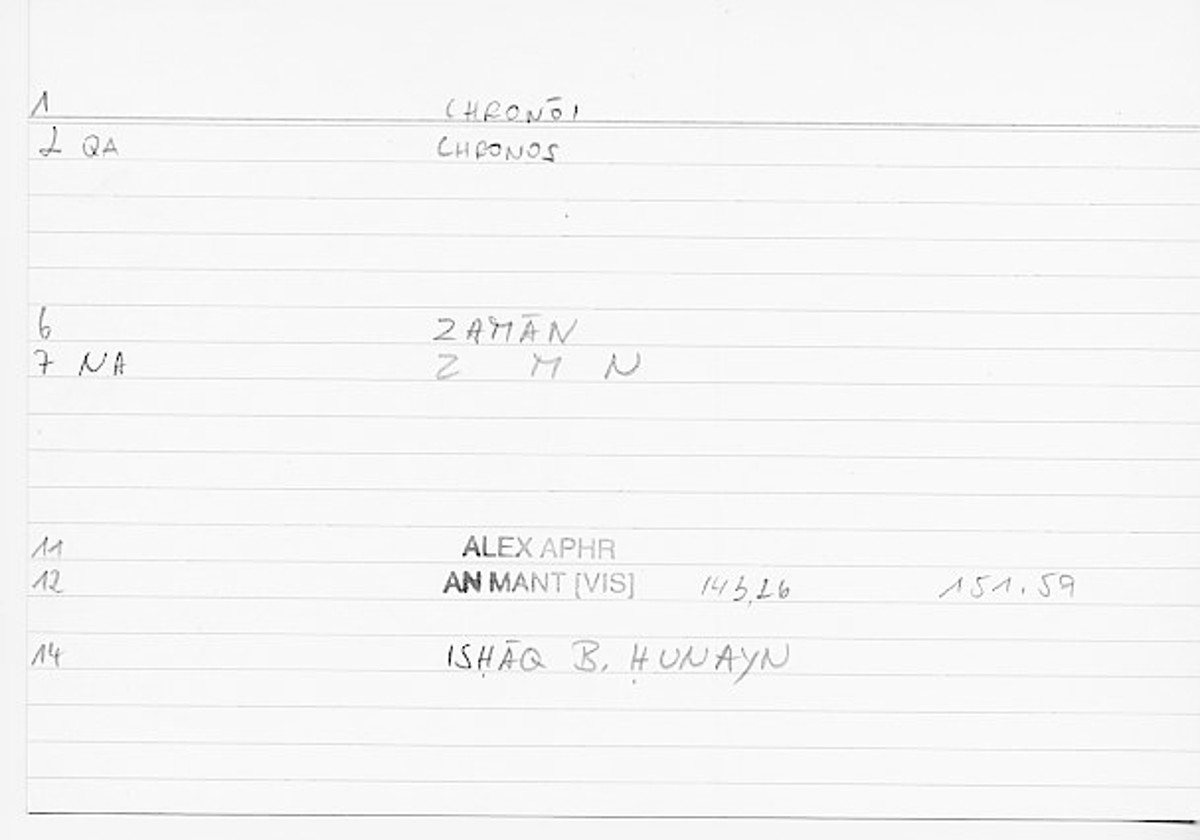 1 CHRONŌI
2 QA CHRONOS
6 ZAMĀN
7 NA Z M N
11 ALEX APHR
12 AN MANT [VIS] 145,26 151.59
14 ISḤĀQ B. ḤUNAYN